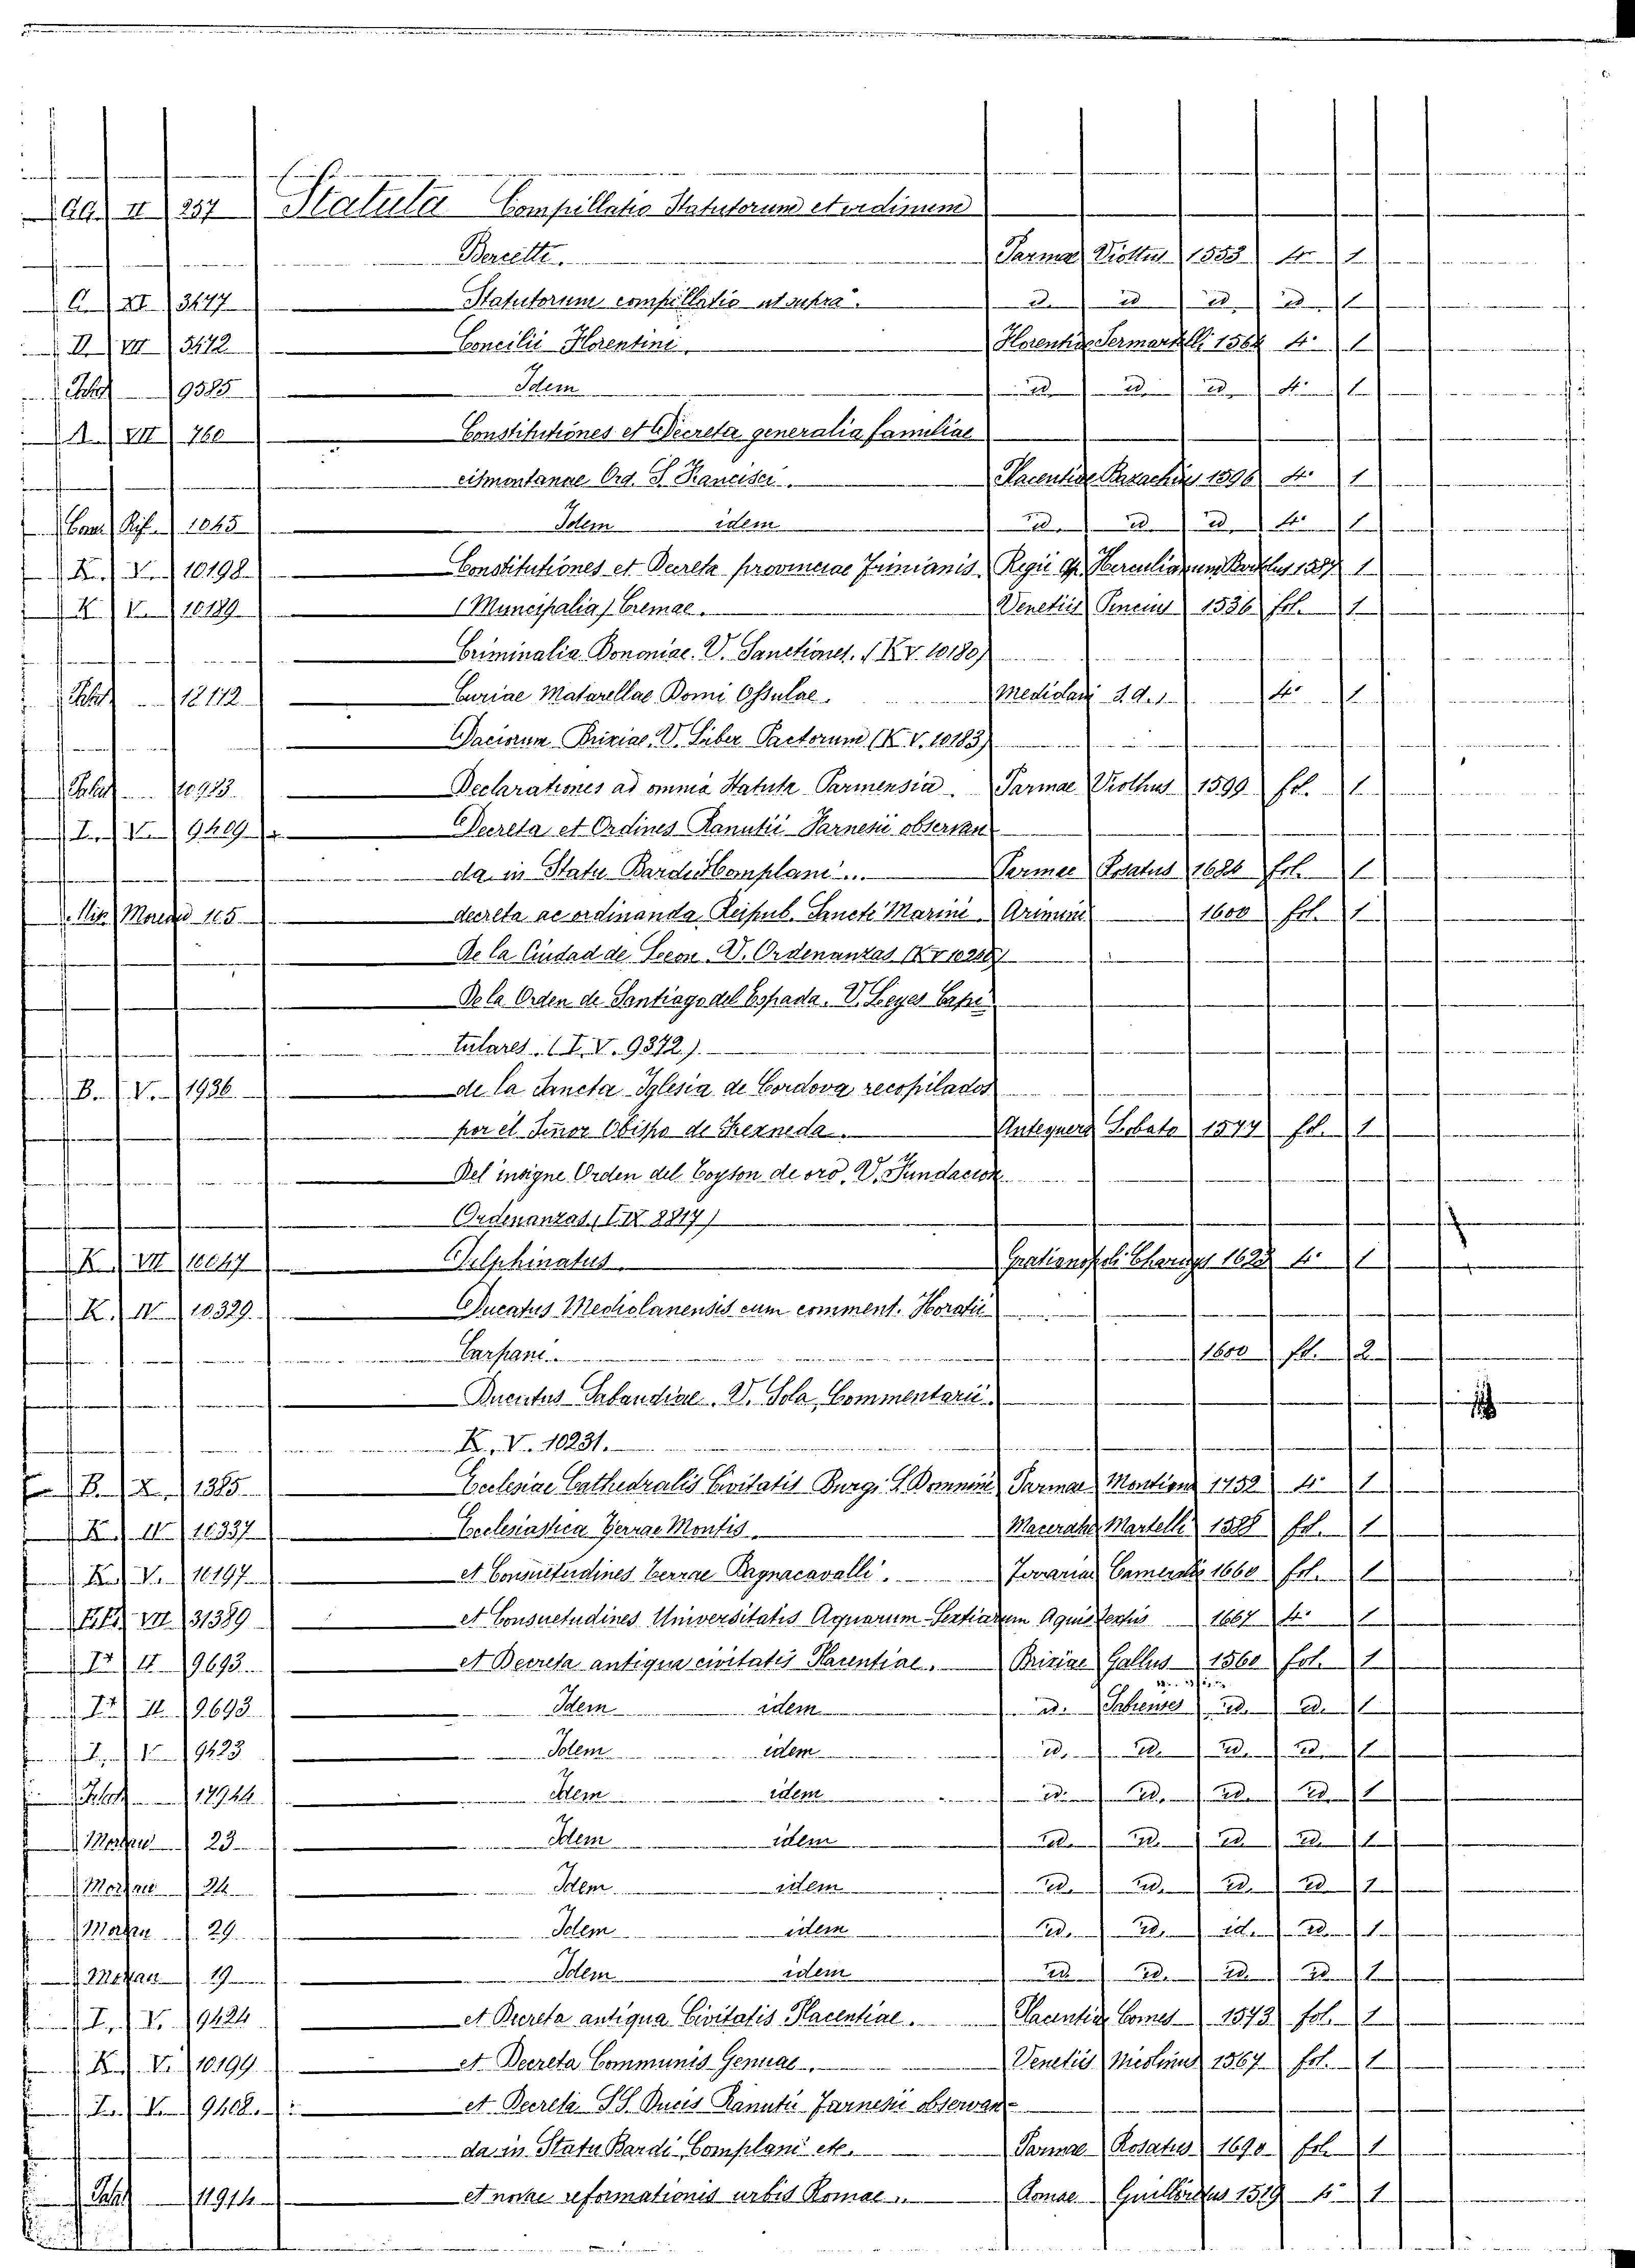 GG. II 257 Statuta Compillatio Statutorum et ordinum
Bercetti. Parmae Viottus 1553 4º 1
C. XI 3477 Statutorum compillatio ut supra. id. id id. id 1
II VII 5472 Concilii Florentini Florentiae Sermartelli 1564 4º 1
9585 Idem id id. id. 4º 1
A. VII 760 Constitutiones et Decreta generalia familiae
cismontanae Ord. S. Francisci. Placentiae Bazachius 1596 4º 1
Cam. Rif. 1045 Idem idem id. id id. 4º 1
K. V. 10198 Constitutiones et Decreta provinciae Regii ap. Herculianum 1 
K. V. 10189 (Muncipalia) Cremae. Venetiis Pencius 1536 fol. 1
Criminalia Bononiae. V. Sanctiones. (K.V. 10180)
12112 Curiae Matarellae Domi Ossulae. Mediolani 4º 1
Daciorum Brixiae. V. Liber Pactorum (K.V. 10183)
10923 Declarationes ad omnia Statuta Parmensia. Parmae Viothus 1599 fol. 1
I. V. 9409 Decreta et Ordines Ranutii Farnesii observan
da in Statu Bardi Complani... Parmae Rosatus fol. 1
Mis. 115 decreta ac ordinanda Reipub. Sancti Marini. Arimini 1600 fol. 1
De la Ciudad de Leon. V. Ordenanzas
De la Orden de Santiago del Espada. V. Leyes Capi
tulares. (I. V. 9372.)
B. V. 1936 de la Sancta Iglesia de Cordova recopilados
por el Senor Obispo de Antequera Lobato 1577 fol. 1
Del insigne Orden del Toyson de oro. V. Fundacion
Ordenanzas, (I. IX 8817)
K. VII Delphinatus Grationopoli Charuys 1623 4º 1
K. IV 10329 Ducatus Mediolanensis cum comment. Horatii
Carpani. 1600 fol. 2
Ducatus Sabaudiae. V. Sola, Commentarii.
K. V. 10231.
B. X. 1385 Ecclesiae Cathedralis Civitatis Burgi S. Domnini Parmae 1752 4º 1
K. IV 10337 Ecclesiastica Terrae Montis. Maceratae Martelli 1588 fol. 1
K. V. 10197 et Consuetudines terrae Bagnacavalli. Ferrariae Cameralis 1660 fol. 1
VII 31389 et Consuetudines Universitatis Aquarum-Sextiarum Aquis Sextiis 1667 4º 1
II 9693 et Decreta antiqua civitatis Placentiae. Brixiae Gallus 1560 fol. 1
II. 9693 Idem idem id. Sabienses id. id. 1
I. V 9423 Idem idem id. id. id. id. 1
17944 Idem idem id. id. id. id. 1
Morbau 23 Idem idem id. id. id. id. 1
24 Idem idem id. id. id. id 1
29 Idem idem id. id. id. id. 1
19 Idem idem id. id. id. id 1
I. V. 9424 et Decreta antiqua Civitatis Placentiae. Placentiae Comes 1573 fol. 1
K. V. 10199 et Decreta Communis Genuae. Venetiis 1567 fol. 1
I. V. 9408. et Decreta SS. Ducis Ranutii Farnesii observan-
da in Statu Bardi, Complani etc. Parmae Rosatus 1690 fol. 1
11914 et novae reformationis urbis Romae. Romae 1519 4º 1